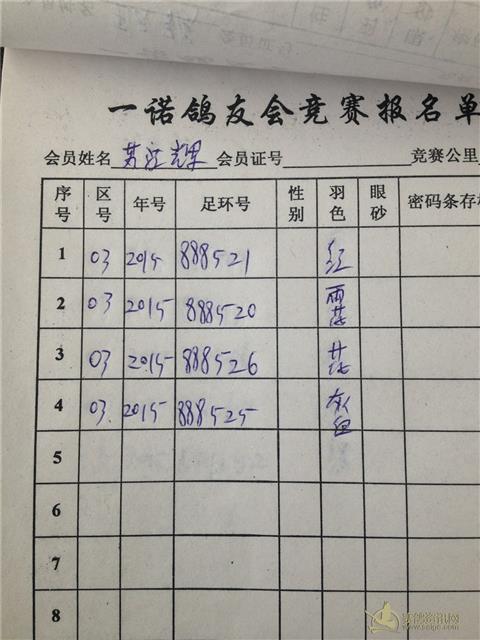 一诺鸽友会竞赛报名单
会员姓名 会员证号 竞赛公里
序号 区号 年号 足环号 性别 羽色 眼砂 密码条存根
1 03 2015 888521 红
2 03 2015 888520 雨花
3 03 2015 888526 花
4 03. 2015 888525
5
6
7
8
赛鸽资讯网
www.saige.com